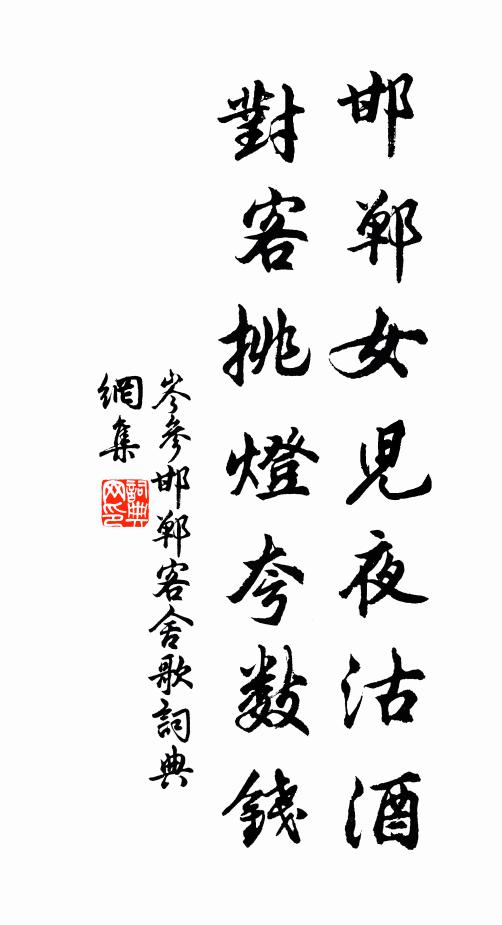 邯鄲女兒夜沽酒
對客挑燈夸數錢
岑參邯鄲客舍歌詞典
網集
詞典網印